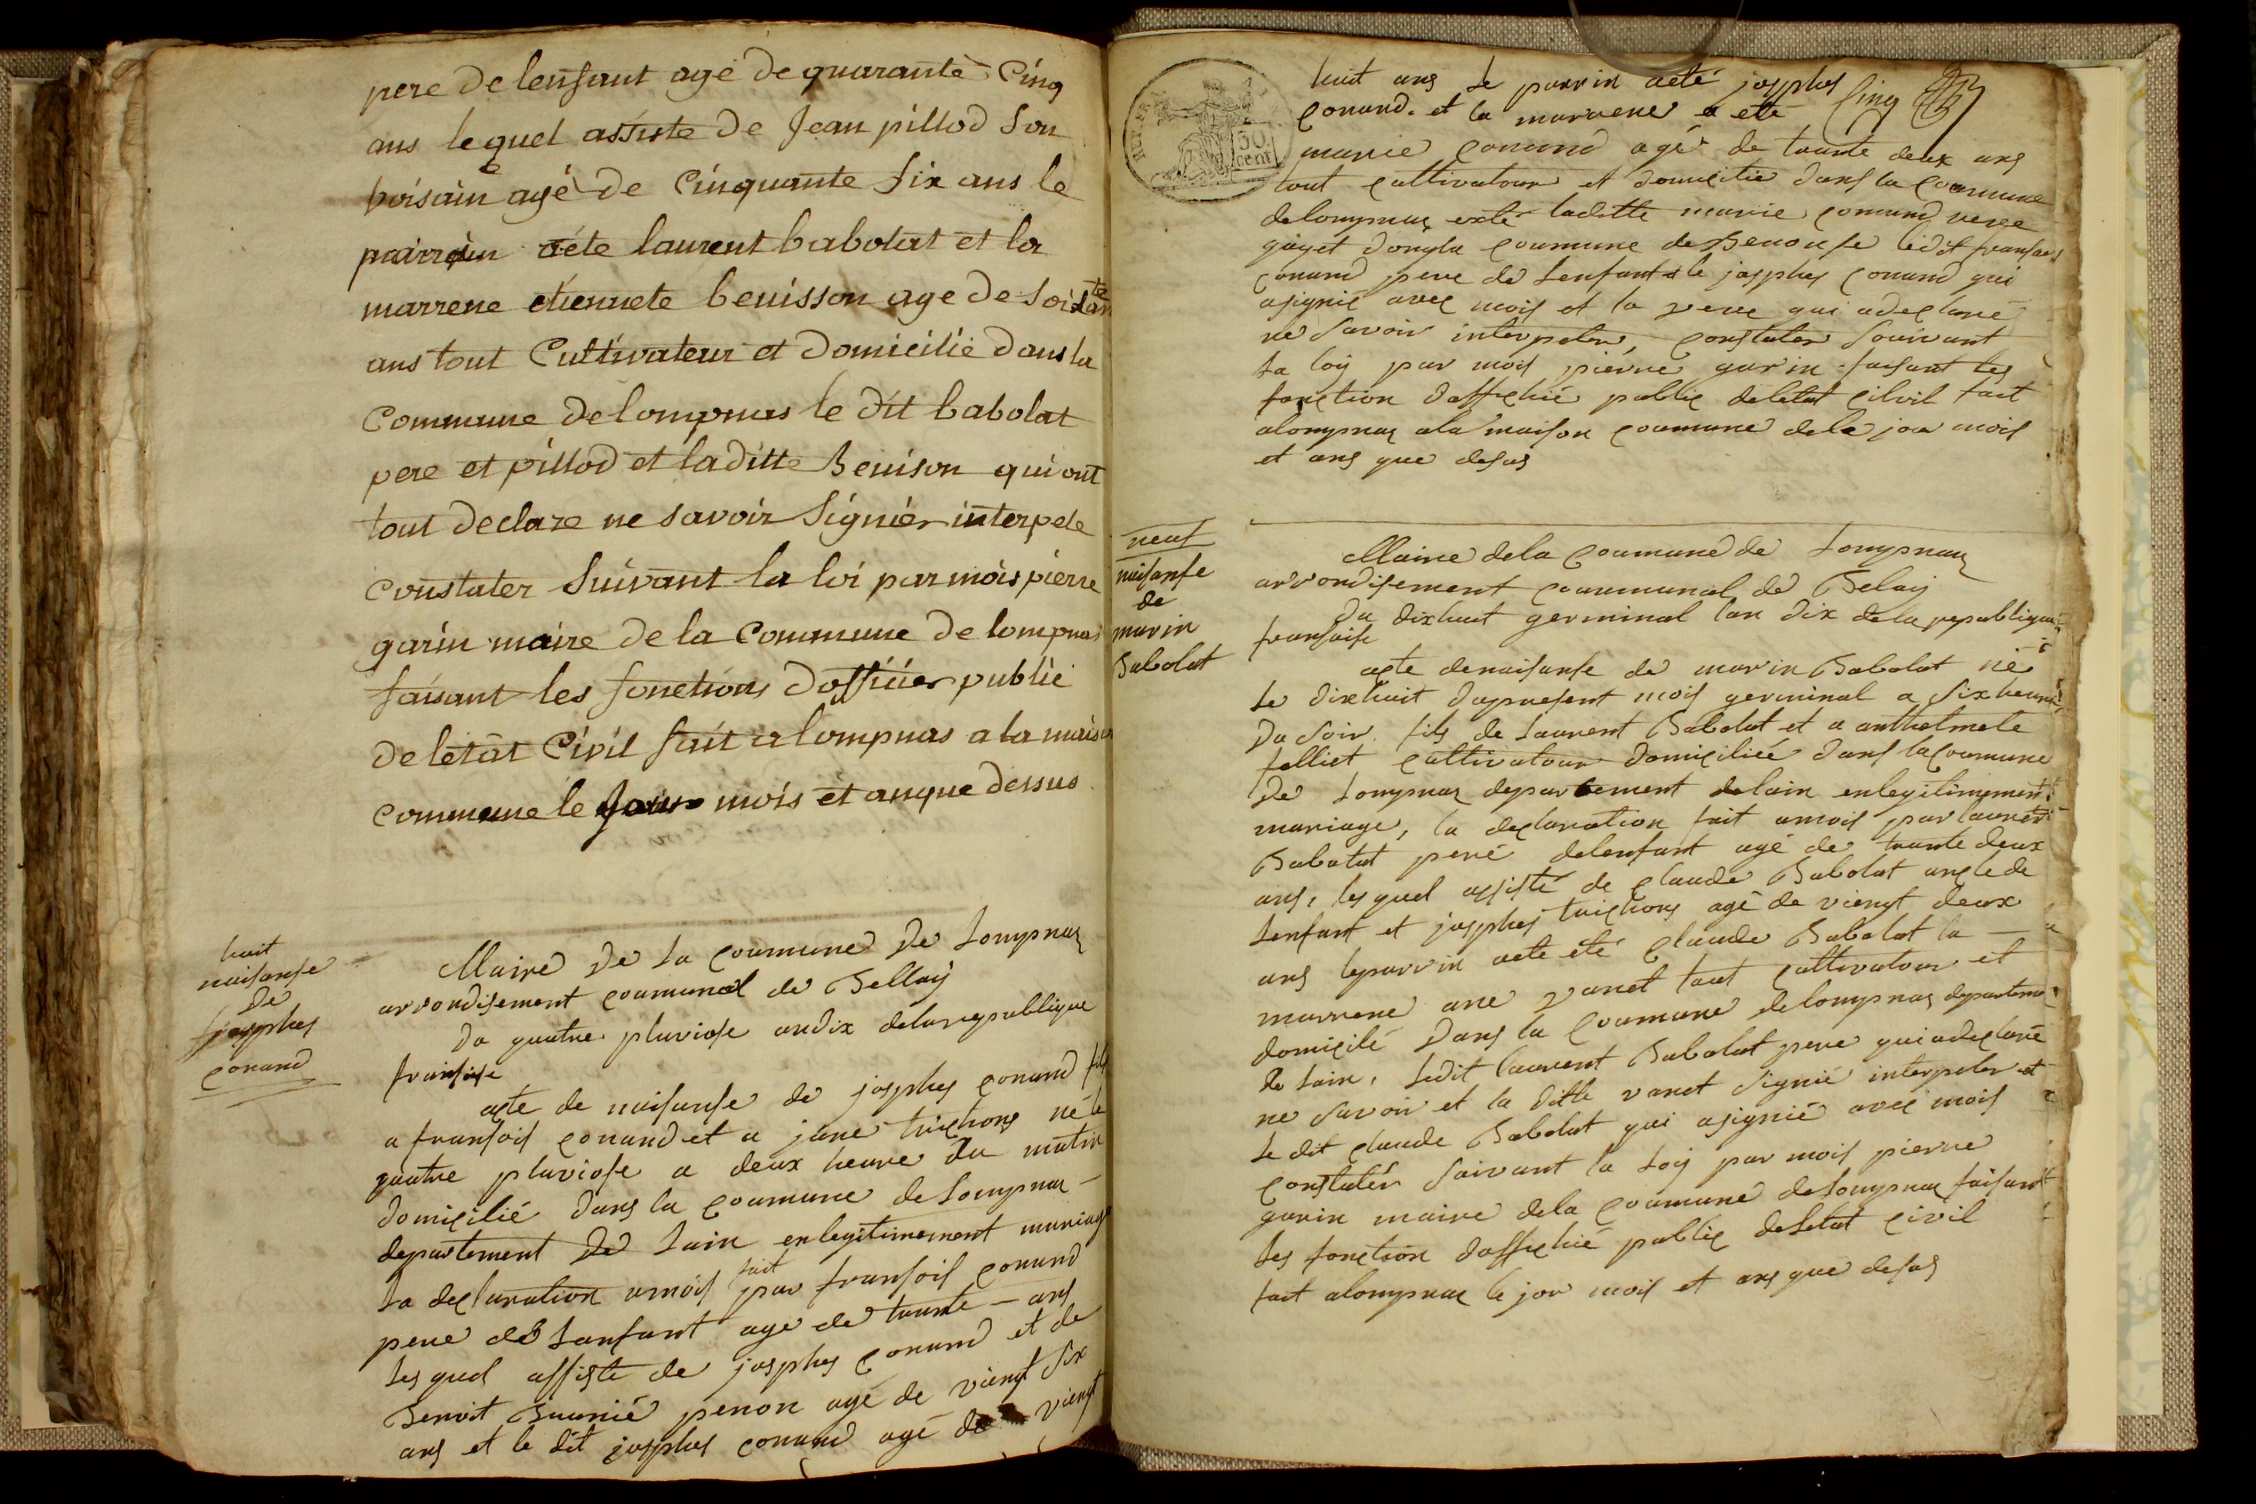 pere de lenfant agé de quarante Cinq
ans lequel assiste de Jean pillod Son
voisain agé de Cinquante Six ans le
pairrain aéte laurent babolat et la
marrene etiennete benisson age de soisante
ans tout Cultivateur et domicilié dans la
Commune de lompnas le dit babolat
pere et pillod et laditte Benison qui ont
tout declare ne savoir Signier interpele
Constater Suivant la loi par mois pierre
garin maire de la Commune de lompnas
faisant les fonctions dofficier public
de letât Civil fait a lompnas a la maison
Commune le Jour mois et an que dessus
huit
naisanse
De
josphes
conand
Maire De La Coumune De Lompnas
arrondisement coumunal de Bellay
Du quatre pluviose an dix de la republique
fransaise
acte de naisanse de josphes conand fils
a fransois conand et a jane tuichons né le
quatre pluviose a deux heure du matin
domicilié dans la coumune de Lompnas
departement De Lain en legitimement mariage
La declaration a mois fait par fransois conand
pere de Lanfant age de trante ans
Les quel assiste de josphes conand et de
Benoit penon agé de viengt six
ans et le dit josphes conand agé de viengt
huit ans Le parrin aeté josphes
conand. et la marrene a eté
cinq
REP. FRA.
50
cent
marie conand agé de trante deux ans
tout cultivatour et domicilié dans la coumune
de lompnas exte ladette marie conand veve
goyet dongla coumune de Benonse le dit fransois
conand pere de Lenfant le josphes conand qui
asignié avec mois et la veve qui adeclaré
ne Savoir interpeler, constater Souivant
La loy par mois pierre garin faisant les
fonction daffichié public de letat cilvil fait
alompnas ala maison coumune dele jour mois
et ans que desus
neuf
naisanse
de
marin
Babolat
Maire dela coumune de Lompnas
arrondisement coumunal de Belay
Du dixhuit germinal lan dix de la republique
fransaise
acte de naisanse de marin Babolat né
Le dixhuit dupresent mois germinal a six heure
Du Soir. fils de Laurent Babolat et a anthelmete
folliet cultivatour domiciliée dans la Coumune
De Lompnas departement delain enlegitimement
mariage, la declaration fait amois par laurent
Babolat peré delenfant agé de trante deux
ans, les quel assisté de claude Babolat oncle de
Lenfant et josphes tuichons agé de viengt deux
ans leparrin aete eté claude Babolat la
marrene ane vanet tout cultivatour et
domicilé dans la Coumune delompnas departeme
De Lain, Ledit laurent Babolat pere qui adeclaré
ne Savoir et la ditte vanet Signié interpeler et
Le dit claude Babolat qui asignié avec mois
constatér Saivant la Loy par mois pierre
garin maire dela coumune de Lompnas faisant
Les fonction dafficchié public de Letat civil
fait alompnas le jour mois et ans que desus